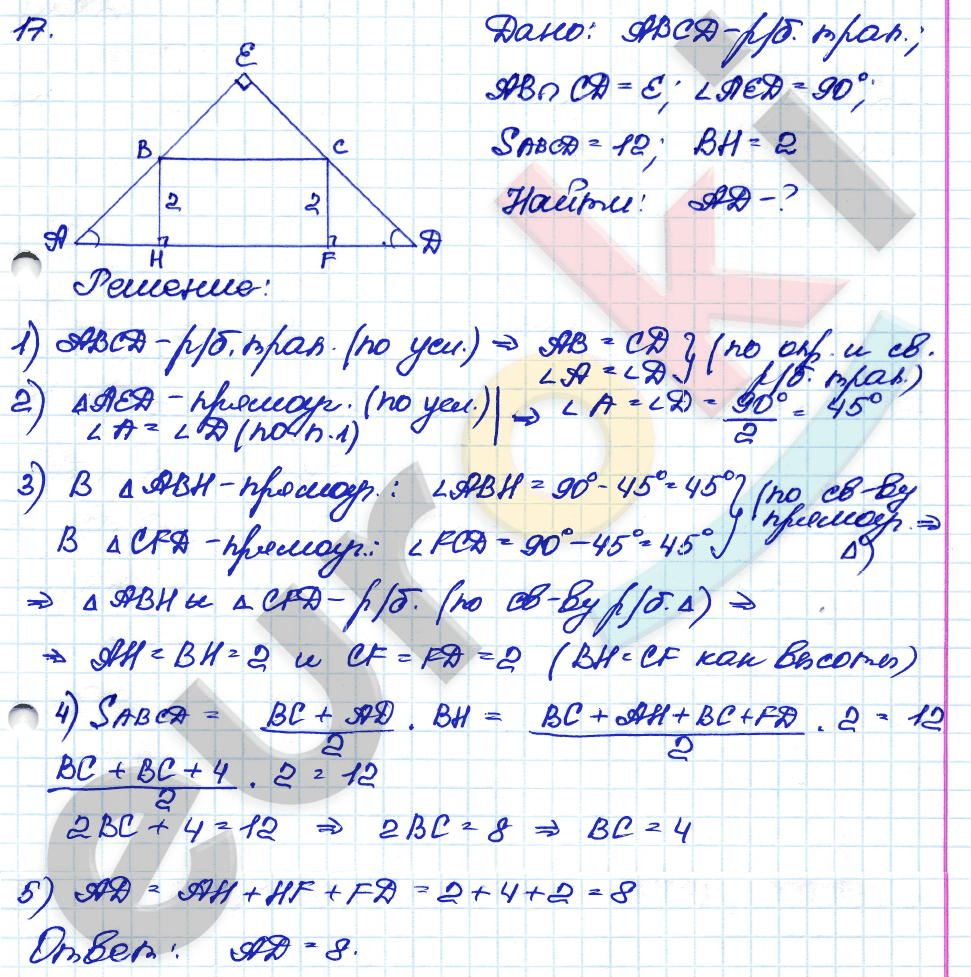 17.
Дано: ABCD - р/б. трап.;
AB ∩ CD = E; ∠AED = 90°;
SABCD = 12; BH = 2
Найти: AD - ?
E
B C
2 2
A H F D
Решение:
1) ABCD - р/б. трап. (по усл.) ⇒ AB = CD } (по опр. и св.
∠A = ∠D } р/б. трап.)
2) △AED - прямоуг. (по усл.) | ⇒ ∠A = ∠D = 90°/2 = 45°
∠A = ∠D (по п.1)
3) В △ABH - прямоуг.: ∠ABH = 90° - 45° = 45° } (по св-ву
В △CFD - прямоуг.: ∠FCD = 90° - 45° = 45° } прямоуг. ⇒
△)
⇒ △ABH и △CFD - р/б. (по св-ву р/б. △) ⇒
⇒ AH = BH = 2 и CF = FD = 2 (BH = CF как высоты)
4) SABCD = (BC + AD)/2 · BH = (BC + AH + BC + FD)/2 · 2 = 12
(BC + BC + 4)/2 · 2 = 12
2BC + 4 = 12 ⇒ 2BC = 8 ⇒ BC = 4
5) AD = AH + HF + FD = 2 + 4 + 2 = 8
Ответ: AD = 8.
euroki